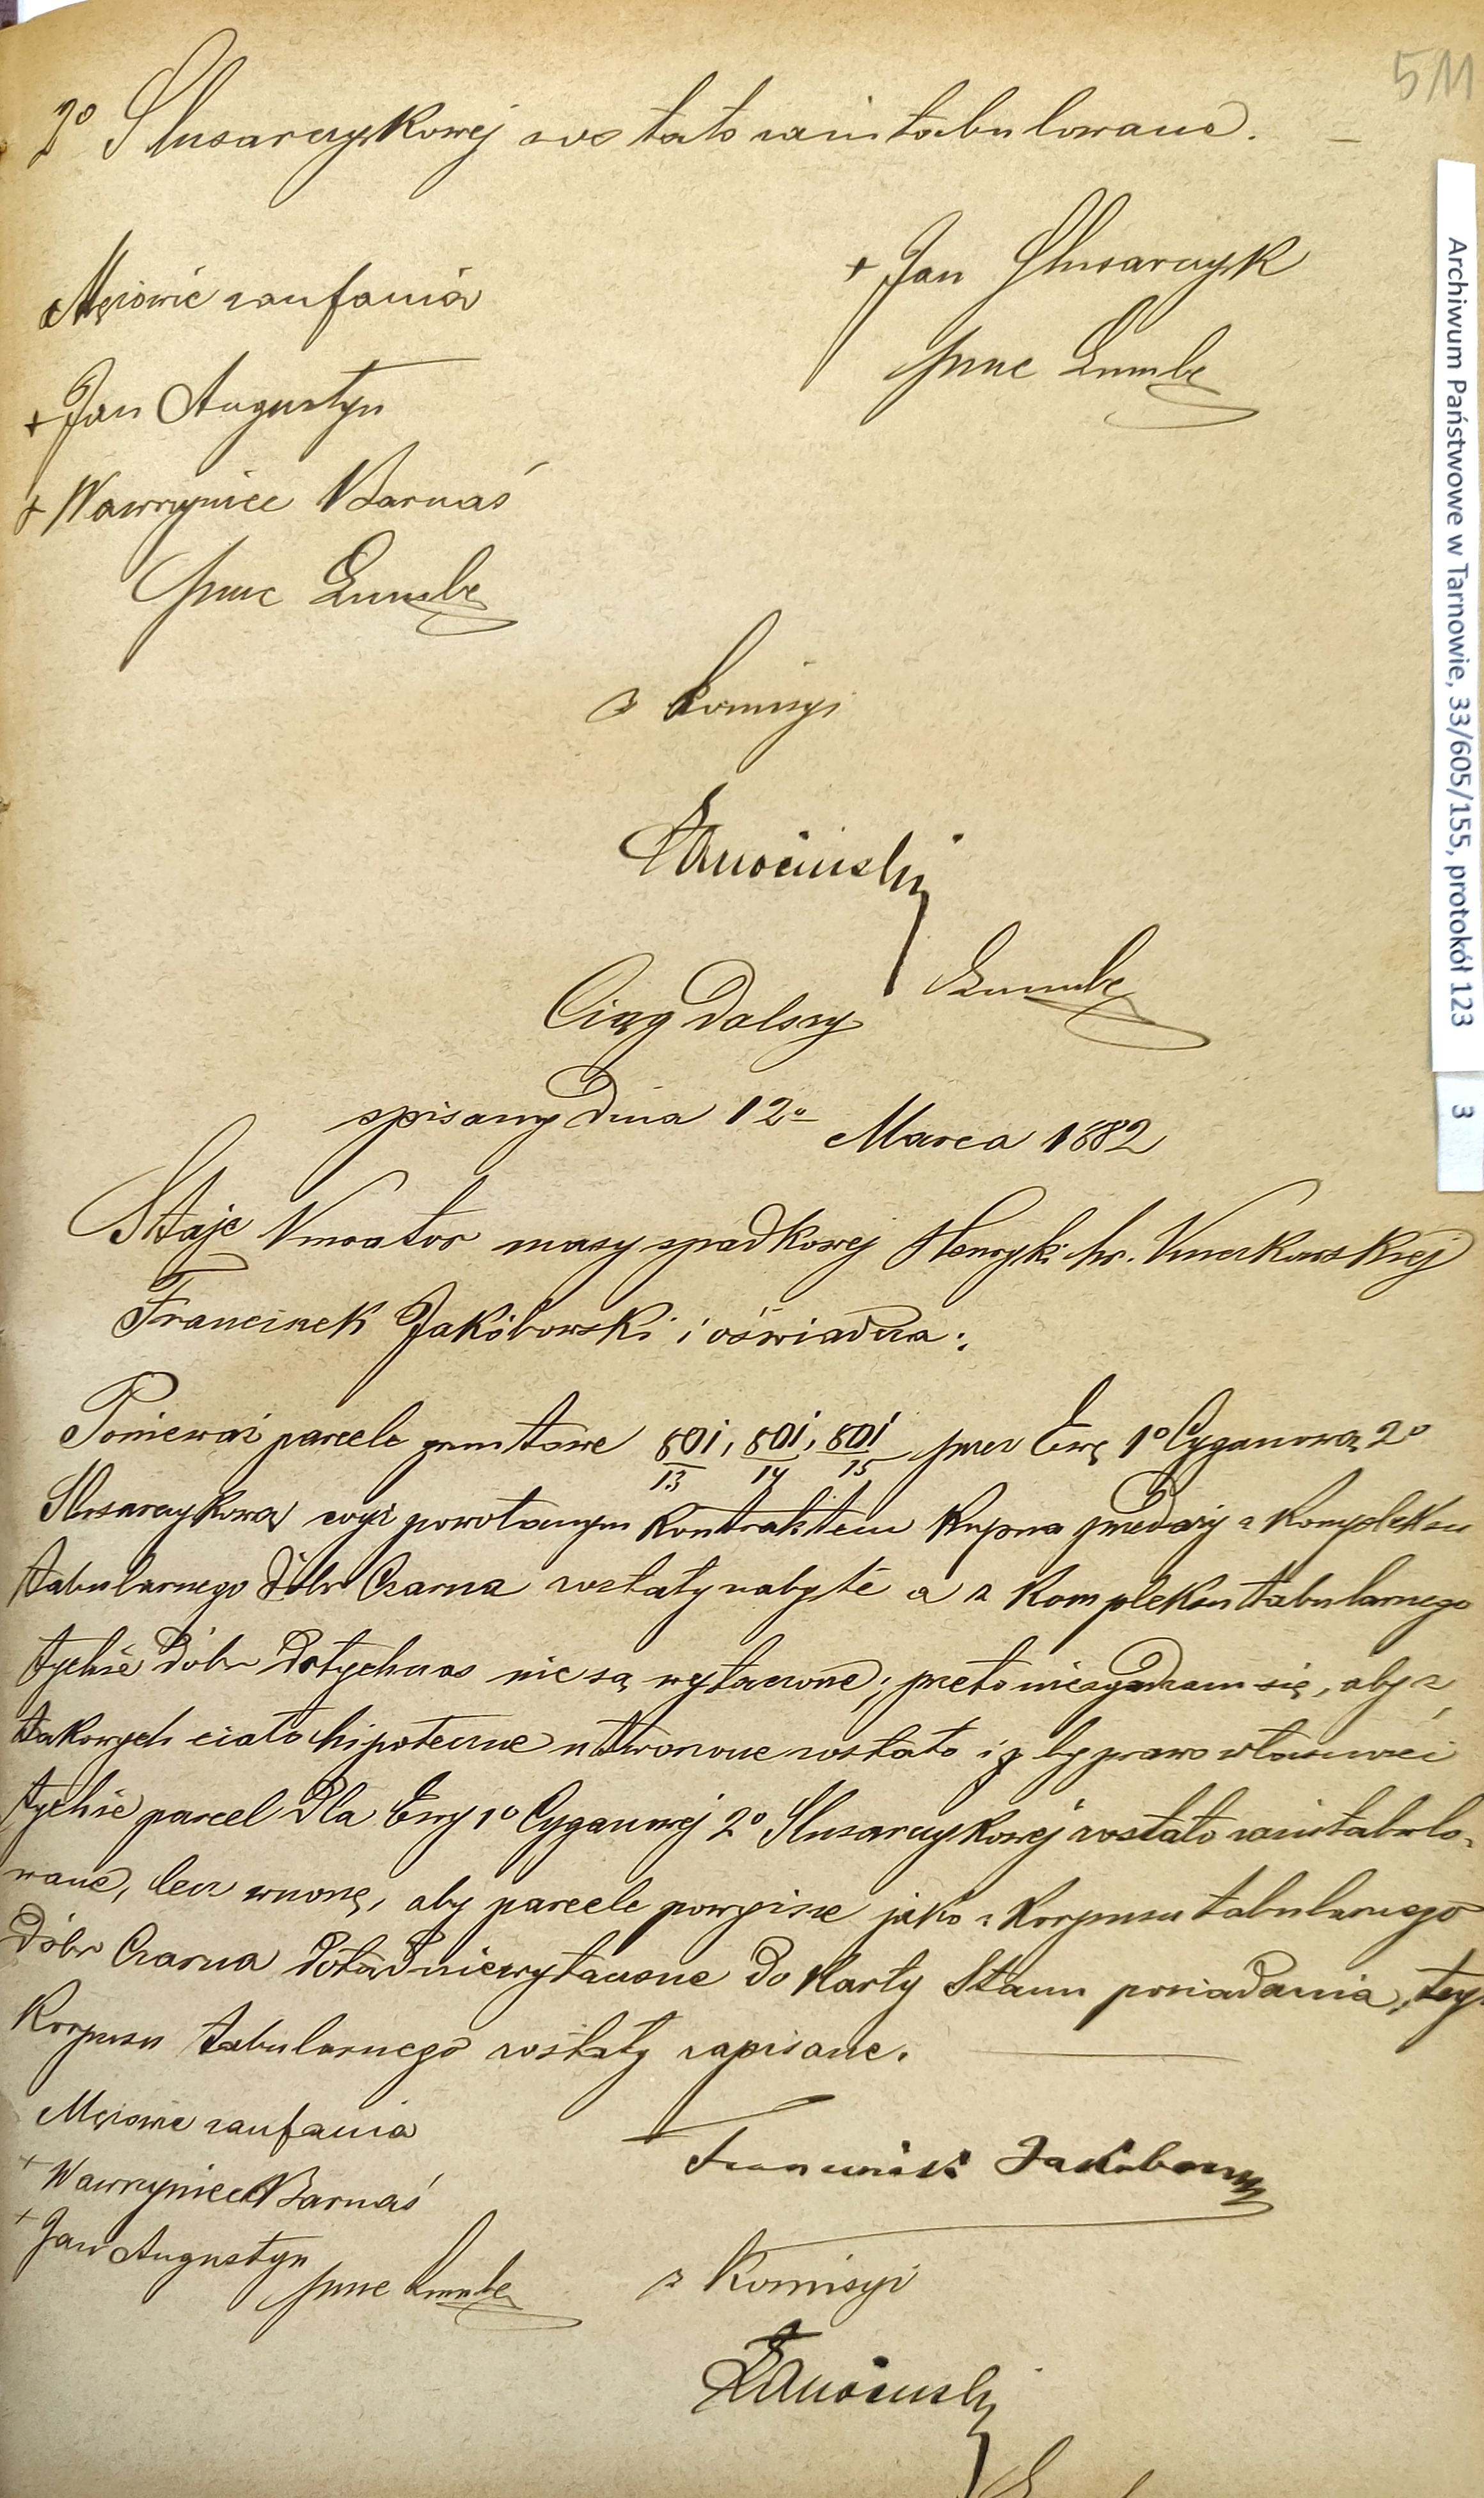 511
2º Slusarczykowej zostało zaintabulowane. —
Mężowie zaufania
+ Jan Slusarczyk
przezemnie
+ Jan Augustyn
+ Wawrzyniec Barnaś
z Komisyi
Ciąg dalszy
spisany dnia 12º Marca 1882
Staje Kurator masy spadkowej Henryki hr.
Franciszek Jakóbowski i oświadcza:
Ponieważ parcele gruntowe 801/13, 801/14, 801/15 przez Ewę 1º Cyganową 2º
Slusarczykową powołanym Kontraktem Kupna przedaży z Kompleksu
tabularnego dóbr Czarna zostały nabyte a z Kompleksu tabularnego
tychże dóbr dotychczas nie są wyłączone; przeto niezgadzam się, aby z
takowych ciało hipoteczne utworzone zostało i by prawo własności
tychże parcel dla Ewy 1º Cyganowej 2º Slusarczykowej zostało zaintabulo-
wane, lecz wnoszę, aby parcele powyższe jako z Korpusu tabularnego
dóbr Czarna dotąd niewyłączone do Karty Stanu posiadania, teg.
Korpusu tabularnego zostały zapisane.
Mężowie zaufania
+ Wawrzyniec Barnaś
+ Jan Augustyn
Franciszek Jakóbowski
z Komisyi
Archiwum Państwowe w Tarnowie, 33/605/155, protokół 123
3